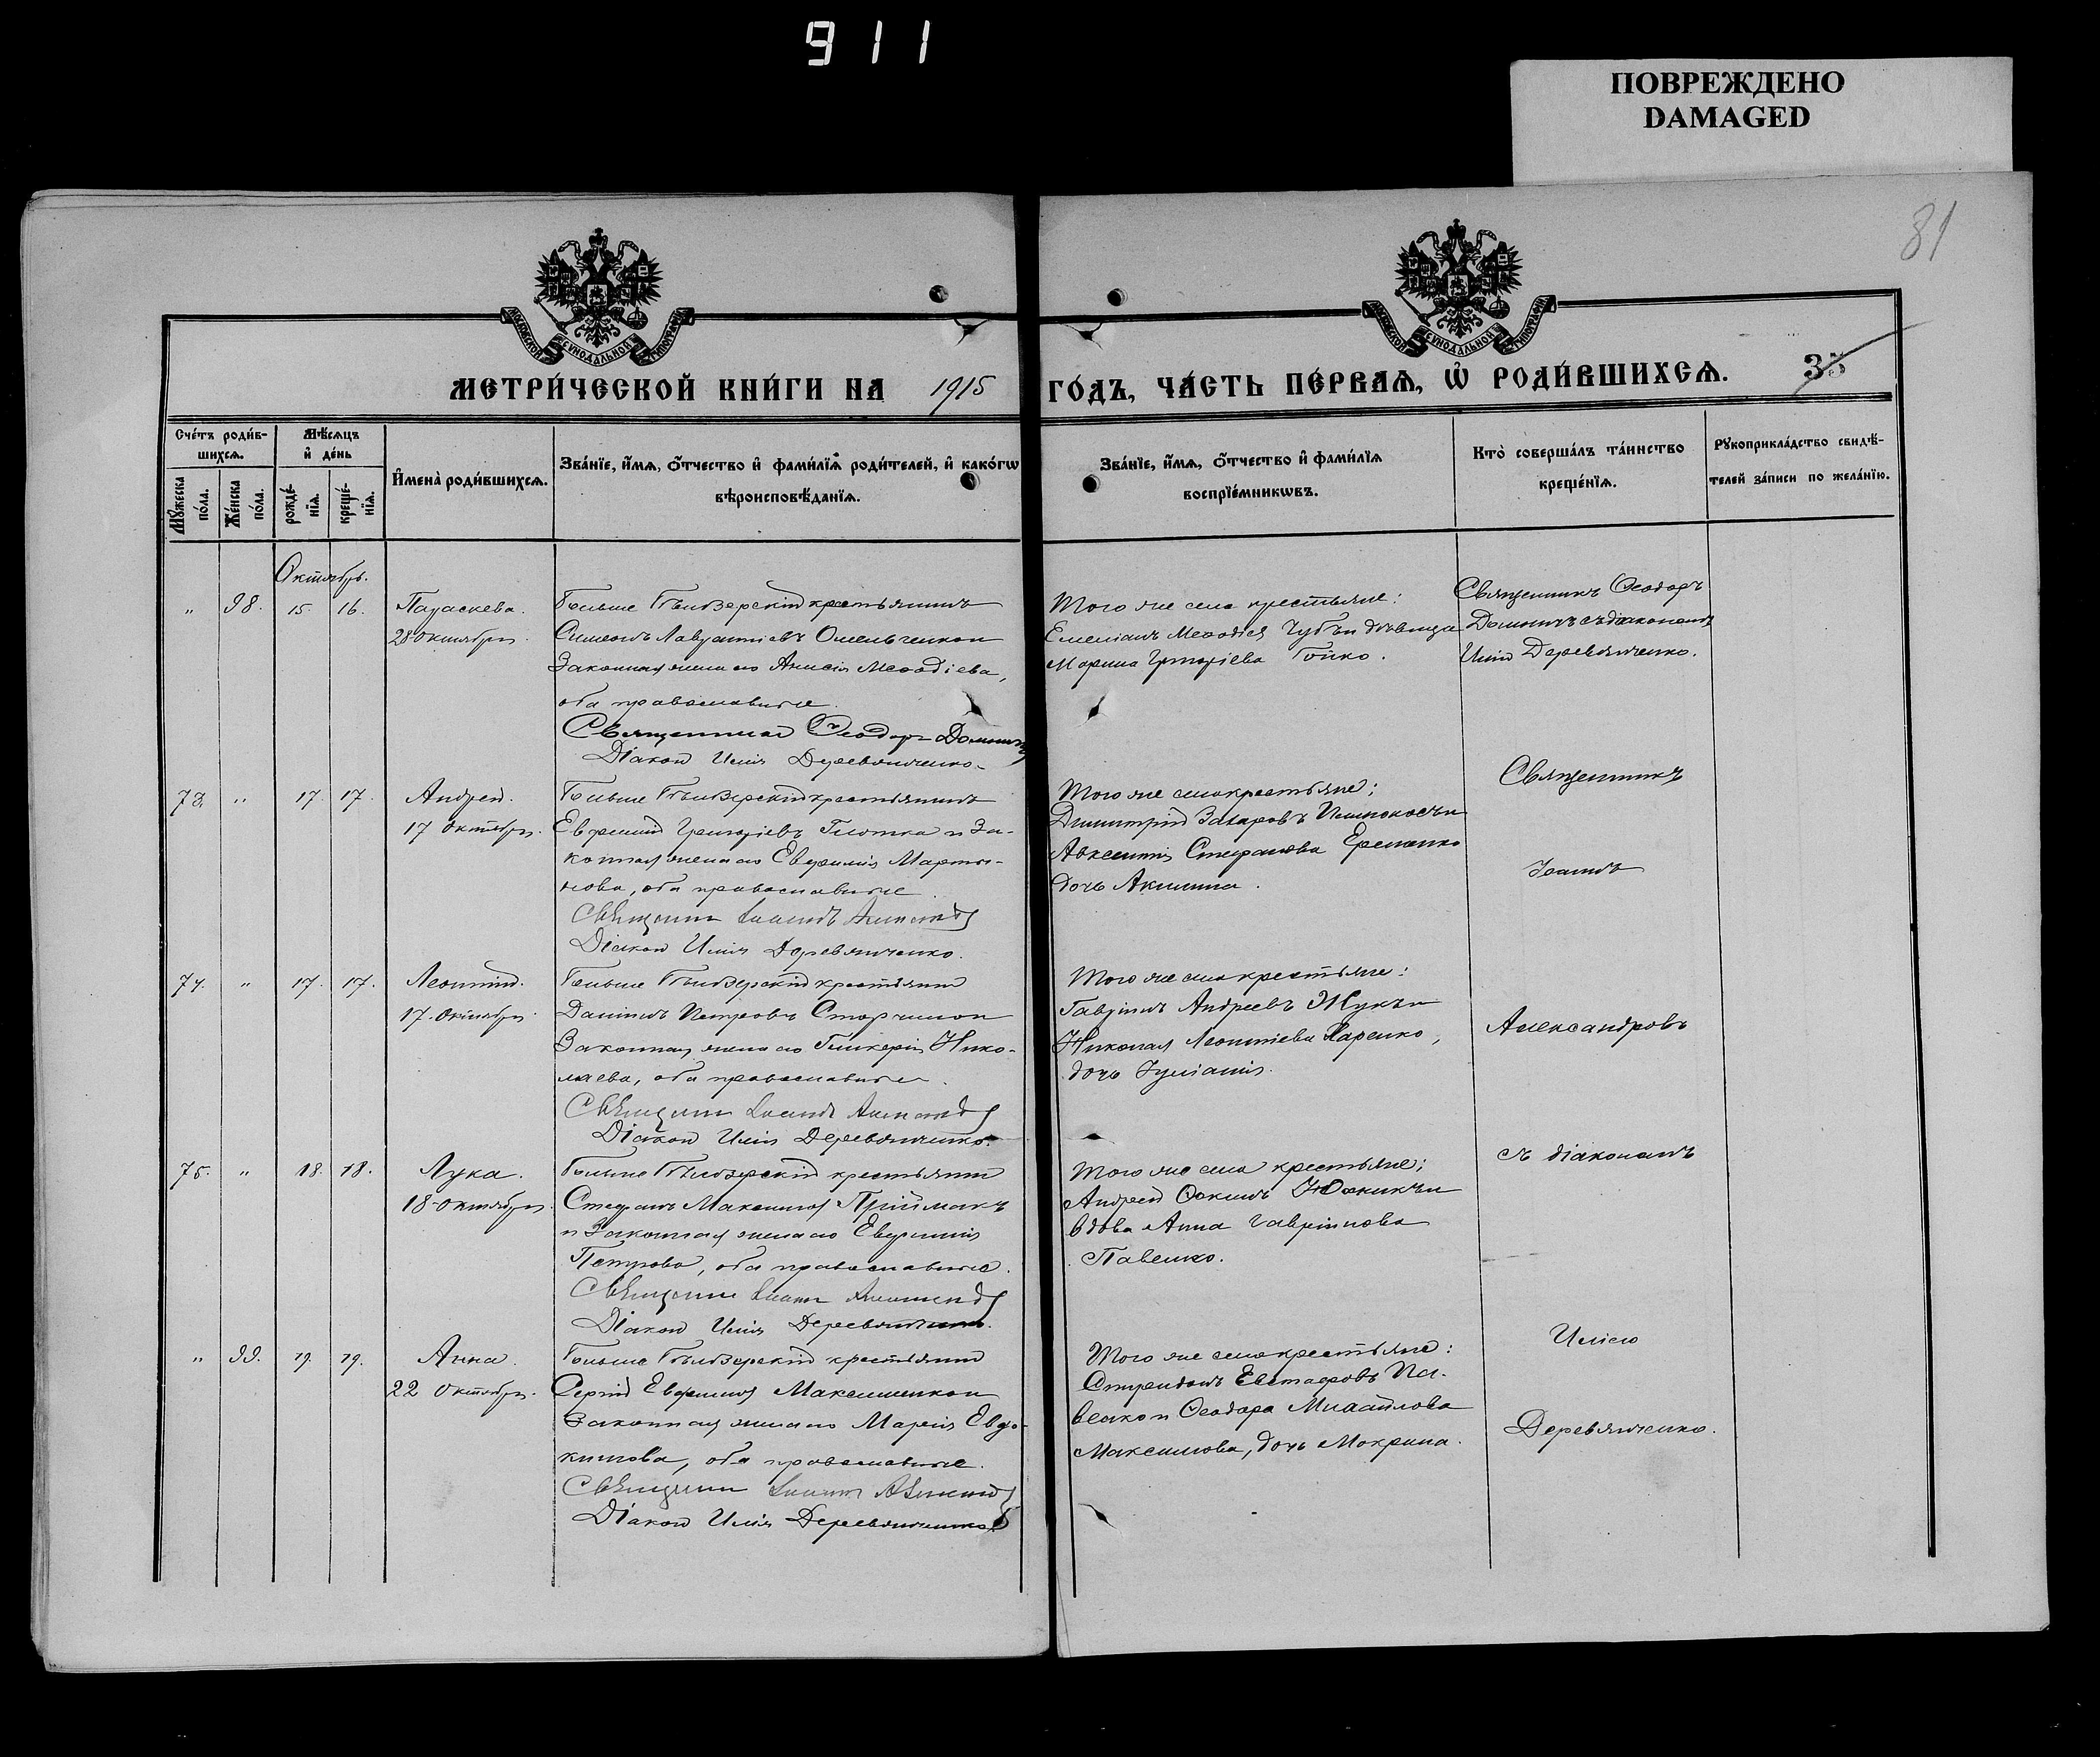 911
ПОВРЕЖДЕНО
DAMAGED
31
МОСКОВСКОЙ СѴНОДАЛЬНОЙ ТИПОГРАФІИ
МОСКОВСКОЙ СѴНОДАЛЬНОЙ ТИПОГРАФІИ
МЕТРИ́ЧЕСКОЙ КНИ́ГИ НА 1915 ГО́ДЪ, ЧА́СТЬ ПЕ́РВАѦ, Ѡ҆ РОДИ́ВШИХСѦ.
35
Сче́тъ роди́в-
шихсѧ.
Мѣ́сѧцъ
и҆ де́нь
Мꙋ́жеска по́ла.
Же́нска по́ла.
рожде́-
нїѧ.
креще́-
нїѧ.
И҆мена̀ роди́вшихсѧ.
Зва́нїе, и҆́мѧ, ѻ҆́тчество и҆ фами́лїѧ роди́телей, и҆ како́гѡ
вѣроисповѣ́данїѧ.
Зва́нїе, и҆́мѧ, ѻ҆́тчество и҆ фами́лїѧ
воспрїе́мникѡвъ.
Кто̀ соверша́лъ та́инство
креще́нїѧ.
Рꙋкоприкла́дство свидѣ́-
телей за́писи по жела́нїю.
Октябрь.
" 98. 15. 16. Параскева.
28 октября.
крестьянинъ
Симеонъ Лаврентіевъ Омельченко и
Законная жена его Анисія Меѳодіева,
оба православные.
Священникъ Ѳеодоръ
Діаконъ Илія Деревянченко.
Того же села крестьяне:
Емеліанъ Меѳодіев Чубъ и дѣвица
Марина Григоріева Гойко.
Священникъ Ѳеодоръ
съ діакономъ
Иліею Деревянченко.
73. " 17. 17. Андрей.
17 октября.
крестьянинъ
Евфимій Григоріевъ Глотка и За-
конная жена его Евфимія Марти-
нова, оба православные.
Священникъ Іоаннъ
Діаконъ Илія Деревянченко.
Того же села крестьяне:
Димитрій Захаровъ
Авксентія Стефанова Еременко
дочь Акилина.
Священникъ
Іоаннъ
74. " 17. 17. Леонтій.
17. Октября.
крестьянинъ
Даніилъ Петровъ
Законная жена его Гликерія Нико-
лаева, оба православные.
Священникъ Іоаннъ
Діаконъ Илія Деревянченко.
Того же села крестьяне:
Гавріилъ Андреевъ Жукъ и
Николая Леонтіева Харенко,
дочь Іуліанія.
Александровъ
75. " 18. 18. Лука.
18 октября.
крестьянинъ
Стефанъ Максимов Приймакъ
и Законная жена его Евфимія
Петрова, оба православные.
Священникъ Іоаннъ
Діаконъ Илія Деревянченко.
Того же села крестьяне:
Андрей Южикъ и
вдова Анна Гавріилова
Павенко.
съ діакономъ
" 99. 19. 19. Анна.
22 октября.
крестьянинъ
Сергій Евфимов Максименко и
Законная жена его Марія Евдо-
кимова, оба православные.
Священникъ Іоаннъ
Діаконъ Илія Деревянченко.
Того же села крестьяне:
Спиридонъ Евстафовъ Па-
венко и Ѳеодора Михайлова
Максимова, дочь Мокрина.
Иліею
Деревянченко.